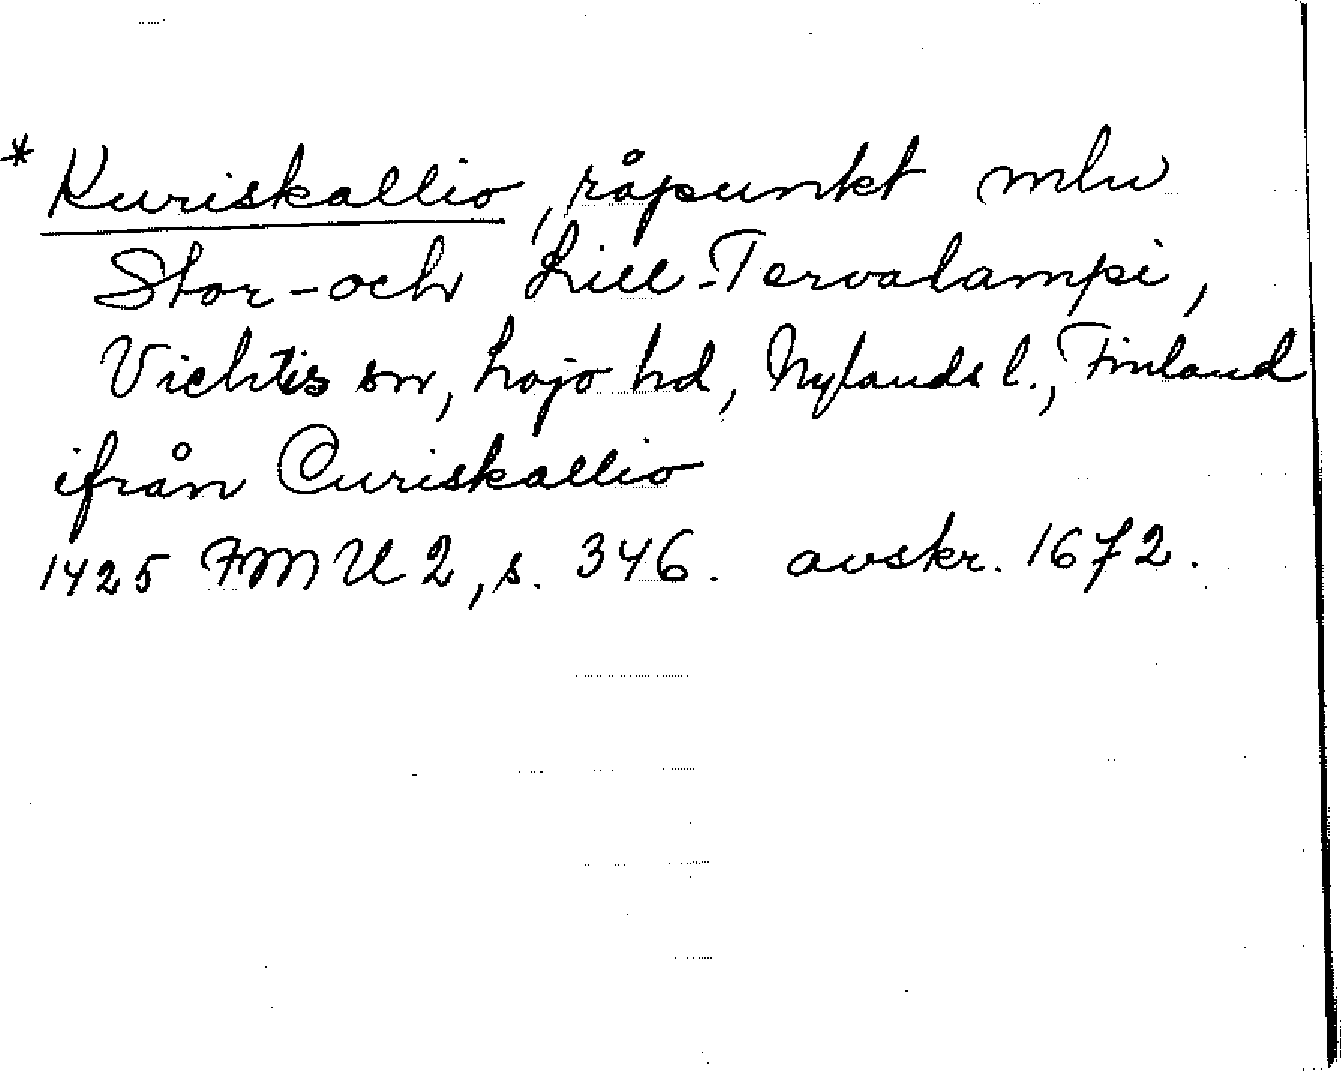 * Kuriskallio, råpunkt mln
Stor- och Lill-Tervalampi,
Vichtis sn, Lojo hd, Nylands l., Finland
ifrån Curiskallio
1425 FMU 2, s. 346. avskr. 1672.